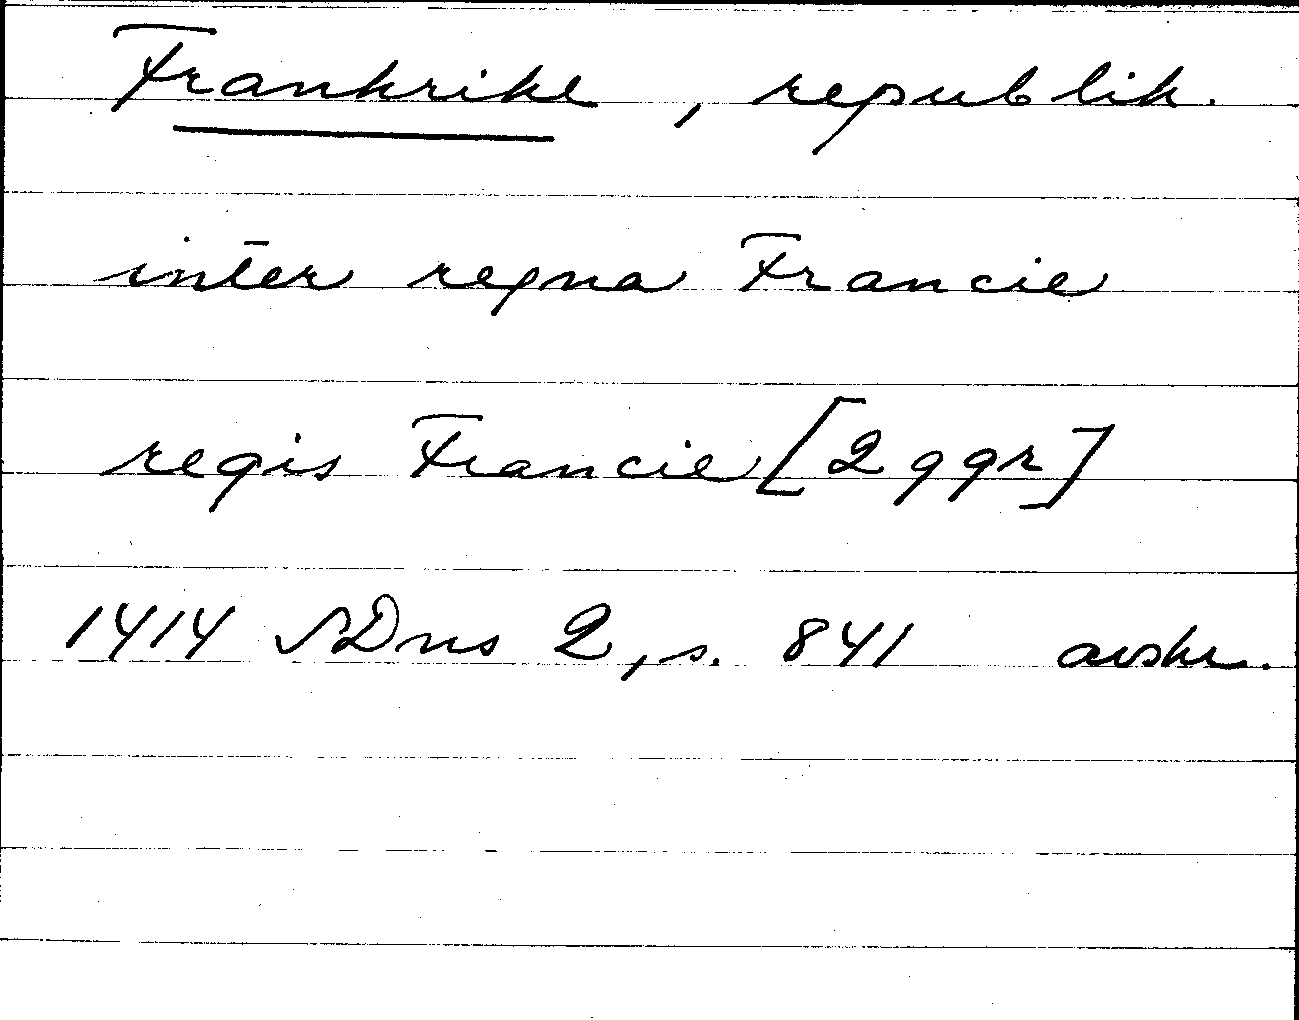 Frankrike, republik.
inter regna Francie
regis Francie [2 ggr]
1414 SDns 2, s. 841 avskr.